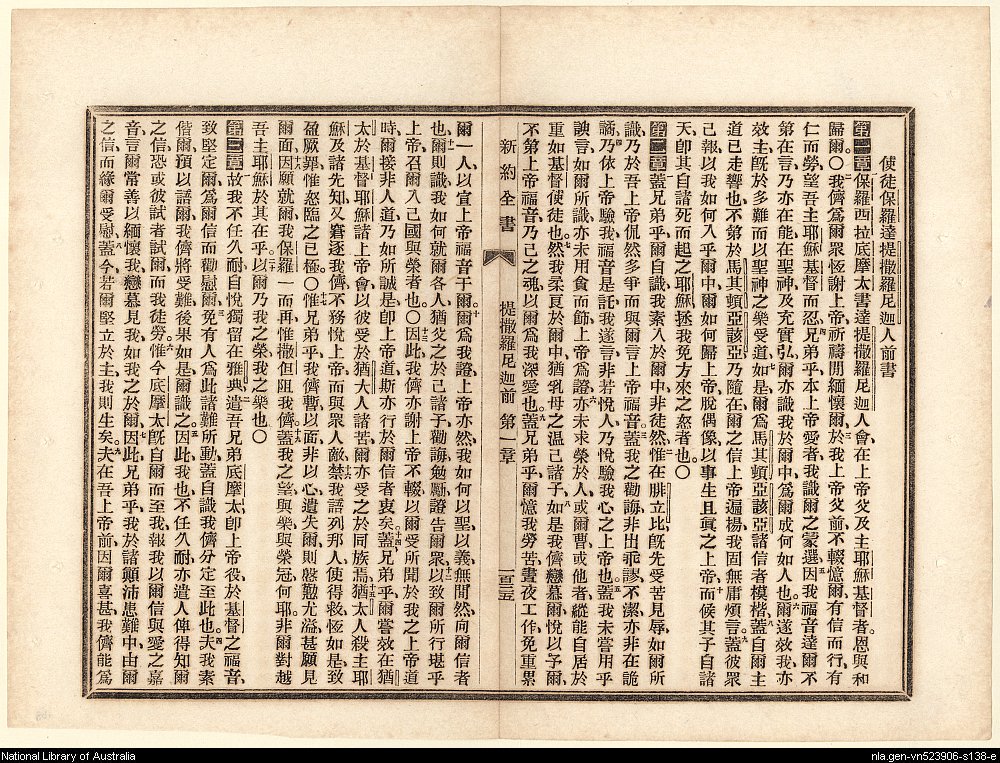 使徒保羅達提撒羅尼迦人前書
第一章保羅西拉底摩太書達提撒羅尼迦人會在上帝父及主耶穌基督者恩與和
歸爾○我儕爲爾衆恆謝上帝祈禱開緬懷爾於我上帝父前不輟憶爾有信而行有
仁而勞望吾主耶穌基督而忍兄弟乎本上帝愛者我識爾之蒙選因我福音達爾不
第在言乃亦在能在聖神及充實弘爾亦識我於爾中爲爾成何如人也爾遂效我亦
效主旣於多難而以聖神之樂受道如是爾爲馬其頓亞該亞諸信者模楷蓋自爾主
道已走響也不第於馬其頓亞該亞乃隨在爾之信上帝遍揚我固無庸煩言蓋彼衆
己報以我如何入乎爾中爾如何歸上帝脫偶像以事生且眞之上帝而候其子自諸
天卽其自諸死而起之耶穌拯我免方來之怒者也○
第二章蓋兄弟乎爾自識我素入於爾中非徒然惟在腓立比旣先受苦見辱如爾所
識乃於吾上帝侃然多爭而與爾言上帝福音蓋我之勸誨非出乖謬不潔亦非在詭
譎乃依上帝驗我福音是託我遂言非若悅人乃悅驗我心之上帝也蓋我未嘗用乎
諛言如爾所識亦未用貪而飾上帝爲證亦未求榮於人或爾曹或他者縱能自居於
重如基督使徒也然我柔良於爾中猶乳母之温己諸子如是我儕戀慕爾悅以予爾
不第上帝福音乃己之魂以爾爲我深愛也蓋兄弟乎爾憶我勞苦晝夜工作免重累
新約全書 提撒羅尼迦前 第一章
爾一人以宣上帝福音于爾爾爲我證上帝亦然我如何以聖以義無間然向爾信者
也爾則識我如何就爾各人猶父之於己諸子勸誨勉勵證告爾衆以致爾所行堪乎
上帝召爾入己國與榮者也○因此我儕亦謝上帝不輟以爾受所聞於我之上帝道
時爾接非人道乃如所誠是卽上帝道斯亦行於爾信者衷矣蓋兄弟乎爾嘗效在猶
太於基督耶穌諸上帝會以彼受於猶大人諸苦爾亦受之於同族焉猶太人殺主耶
穌及諸先知又窘逐我儕不務悅上帝而與衆人敵禁我語列邦人使得救恆如是致
盈厥罪惟怒臨之已極○惟兄弟乎我儕暫以面非以心遺失爾則慇懃尤溢甚願見
爾面因願就爾我保羅一而再惟撒但阻我儕蓋我之望與樂與榮冠何耶非爾對越
吾主耶穌於其在乎以爾乃我之榮我之樂也○
第三章故我不任久耐自悅獨留在雅典遣吾兄弟底摩太卽上帝役於基督之福音
致堅定爾爲爾信而勸慰爾免有人爲此諸難所動蓋自識我儕分定至此也夫我素
偕爾預以語爾我儕將受難後果如是爾識之因此我也不任久耐亦遣人俾得知爾
之信恐或彼試者試爾而我徒勞惟今底摩太旣自爾而至我報我以爾信與愛之嘉
音言爾常善以緬懷我戀慕見我如我之於爾因此兄弟乎我於諸顚沛患難中由爾
之信而緣爾受慰蓋今若爾堅立於主我則生矣夫在吾上帝前因爾喜甚我儕能爲
National Library of Australia
nla.gen-vn523906-s138-e